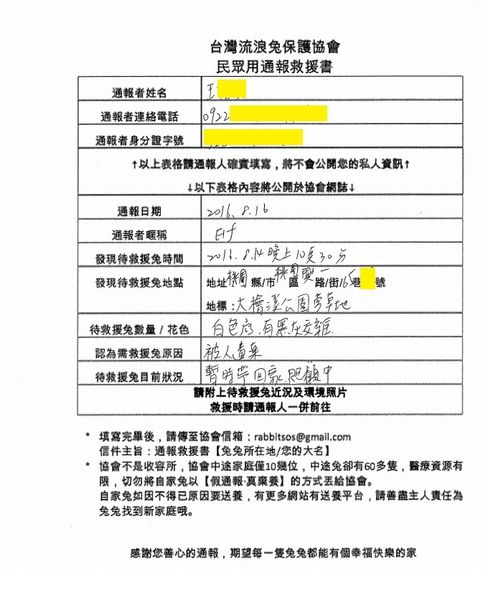 台灣流浪兔保護協會
民眾用通報救援書
通報者姓名 王
通報者連絡電話 0922
通報者身分證字號
↑以上表格請通報人確實填寫，將不會公開您的私人資訊↑
↓以下表格內容將公開於協會網誌↓
通報日期 2013.8.16
通報者暱稱
發現待救援兔時間 2013.8.14 晚上10点30分
發現待救援兔地點 地址:桃園縣/市 桃園區 路/街 巷 號
地標:大檜溪公園旁草地
待救援兔數量 / 花色 白色底.有黑灰交雜
認為需救援兔原因 被人棄養
待救援兔目前狀況 暫時帶回家照顧中
請附上待救援兔近況及環境照片
救援時請通報人一併前往
* 填寫完畢後，請傳至協會信箱：rabbitsos@gmail.com
信件主旨：通報救援書【兔兔所在地/您的大名】
* 協會不是收容所，協會中途家庭僅10幾位，中途兔卻有60多隻，醫療資源有
限，切勿將自家兔以【假通報·真棄養】的方式丟給協會。
自家兔如因不得已原因要送養，有更多網站有送養平台，請善盡主人責任為
兔兔找到新家庭哦。
感謝您善心的通報，期望每一隻兔兔都能有個幸福快樂的家